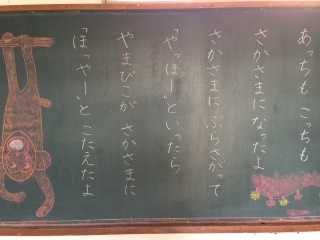 あっちも こっちも
さかさまに なったよ
さかさまに ぶらさがって
「やっほー」といったら
やまびこが さかさまに
「ほっやー」と こたえたよ